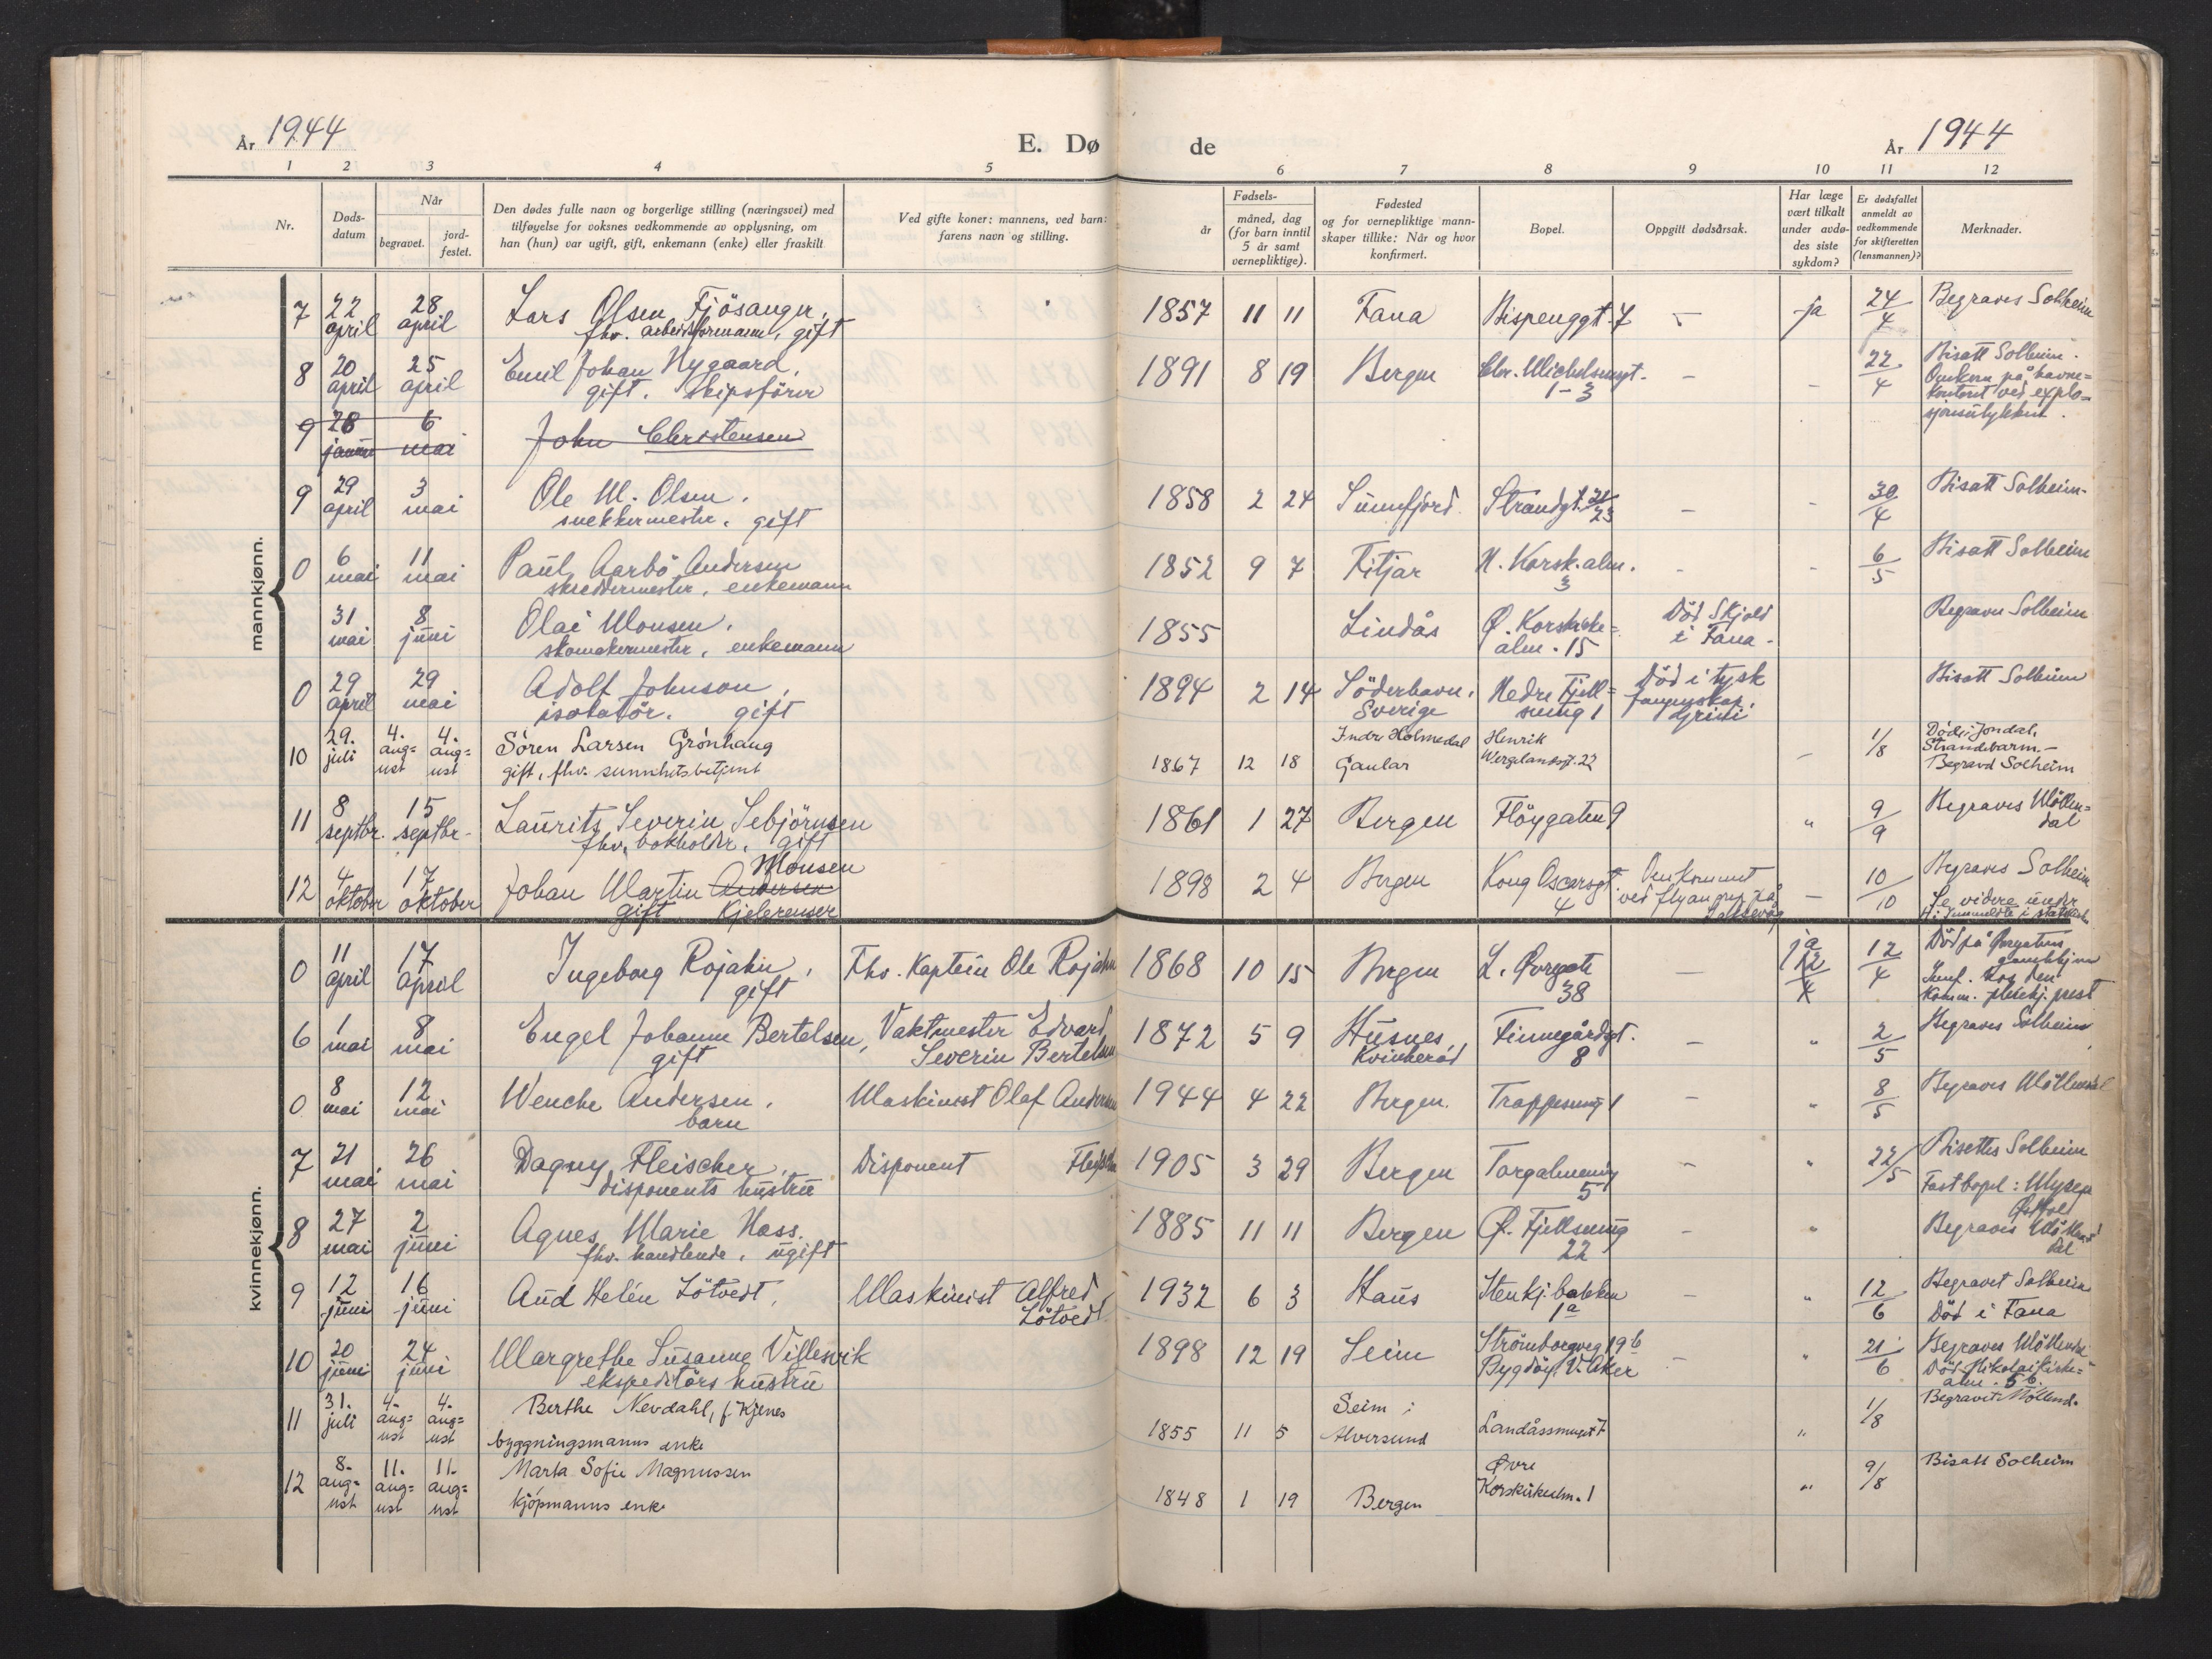 År 1944
E. Dø
de
År 1944
1 2 3 4 5 6 7 8 9 10 11 12
Nr.
Døds-
datum
Når
begravet.
jord-
festet.
Den dødes fulle navn og borgerlige stilling (næringsvei) med
tilføyelse for voksnes vedkommende av opplysning, om
han (hun) var ugift, gift, enkemann (enke) eller fraskilt
Ved gifte koner: mannens, ved barn:
farens navn og stilling.
Fødsels-
år
måned, dag
(for barn inntil
5 år samt
vernepliktige).
Fødested
og for vernepliktige mann-
skaper tillike: Når og hvor
konfirmert.
Bopel.
Oppgitt dødsårsak.
Har læge
vært tilkalt
under avdø-
des siste
sykdom?
Er dødsfallet
anmeldt av
vedkommende
for skifteretten
(lensmannen)?
Merknader.
mannkjønn.
7 22 april 28 april Lars Olsen Fjösanger, 1857 11 11 Fana Bispenggt. 7 - ja 24/4 Begraves Solheim
fhv. arbeidsformann, gift
8 20 april 25 april Emil Johan Nygaard, 1891 8 19 Bergen Chr. Michelsensgt. - - 22/4 Bisatt Solheim.
gift. Skipsförer 1-3 Omkom på havne=
kontoret ved explo=
sjonsulykken.
9 28 januar 6 mai John Christensen
9 29 april 3 mai Ole M. Olsen. 1858 2 24 Sunnfjord Strandgt. 21/23 - - 30/4 Bisatt Solheim-
snekkermester. gift
0 6 mai 11 mai Paul Aarbö Andersen 1852 9 7 Fitjar N. Korsk.alm. 3 - - 6/5 Bisatt Solheim
skreddermester, enkemann
31 mai 8 juni Olai Monsen. 1855 Lindås Ø. Korskirke= Död Skjold Begraven Solheim
skomakermester, enkemann alm. 15 i Fana -
0 29 april 29 mai Adolf Johnson, 1894 2 14 Söderhavn, Nedre Fjell= Död i tysk Bisatt Solheim
isolatör. gift Sverige smug 1 fangenskap, Grini
10 29. juli 4. aug=ust 4. aug=ust Sören Larsen Grönhaug 1867 12 18 Indre Holmedal Henrik - 1/8 Död i Jondal,
gift, fhv. sunnhetsbetjent Gaular Wergelandsgt. 22 Strandebarm.-
Begravd Solheim
11 8 septbr. 15 septbr- Lauritz Severin Sebjörnsen 1861 1 27 Bergen Flöygaten 9 " 9/9 Begraves Möllen=
fhv. bokholder. gift dal
12 4 oktober 17 oktober Johan Martin Andersen Monsen 1898 2 4 Bergen Kong Oscarsgt. 4 Omkommet - 10/10 Begraves Solheim
gift Kjelerenser ved flyangrep på Laksevåg Se videre under
kvinnekjønn.
0 11 april 17 april Ingeborg Rojahn, Fhv. Kaptein Ole Rojahn 1868 10 15 Bergen L. Øvregate - ja 12/4 12/4 Död på Øvregatens
gift 38 gamlehjem
6 1 mai 8 mai Engel Johanne Bertelsen, Vaktmester Edvard 1872 5 9 Husnes, Finnegårdgt. - " 2/5 Begraves Solheim
gift Severin Bertelsen Kvinherad 8
0 8 mai 12 mai Wenche Andersen. Maskinist Olaf Andersen 1944 4 22 Bergen. Trappesmug 1 - " 8/5 Begraves Möllendal
barn
7 21 mai 26 mai Dagny Fleischer, Disponent Fleischer 1905 3 29 Bergen Torgalmening - " 22/5 Bisettes Solheim
disponents hustru 5 Fast bopel: Mysen
Østfold
8 27 mai 2 juni Agnes Marie Hass. 1885 11 11 Bergen Ø. Fjellsmug - " Begraves Möllen=
fhv. handlende. ugift 22 dal
9 12 juni 16 juni Aud Helén Lötvedt, Maskinist Alfred 1932 6 3 Haus Stenkj.bakken - " 12/6 Begravet Solheim
Lötvedt 1a Död i Fana
10 20 juni 24 juni Margrethe Susanne Villesvik 1898 12 19 Seim Strömborgveg 19b - " 21/6 Begraves Möllendal
ekspeditörs hustru Bygdöy V. Aker Död Nikolaikirke=
alm. 5b.
11 31. juli 4. aug=ust 4. aug=ust Berthe Nevdahl, f. Kjenes 1855 11 5 Seim i Landåssmuget 7 " 1/8 Begravet Möllend.
byggningsmanns enke Alversund
12 8. aug=ust 11. aug=ust 11. aug=ust Marta Sofie Magnussen 1848 1 19 Bergen Øvre " 9/8 Bisatt Solheim
kjöpmanns enke Korskirkealm. 1